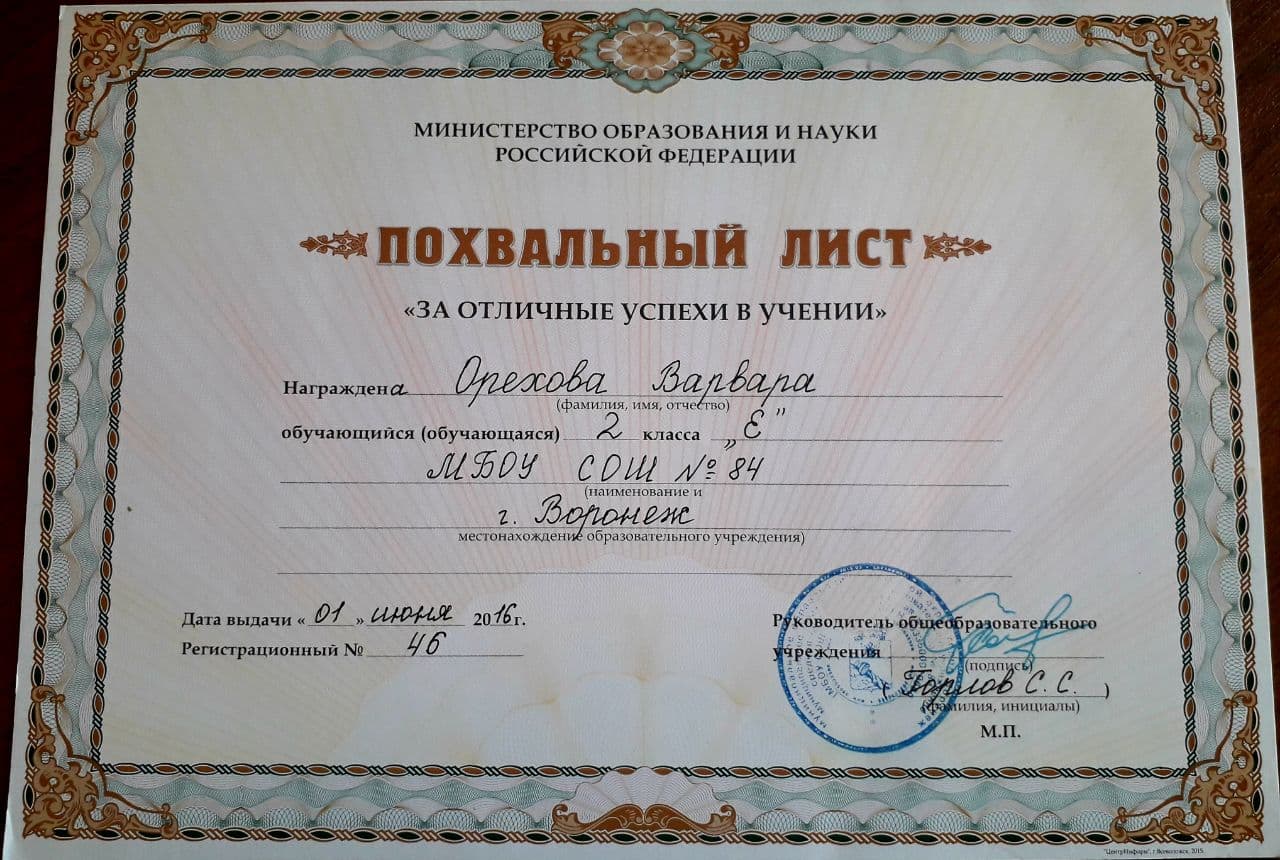 МИНИСТЕРСТВО ОБРАЗОВАНИЯ И НАУКИ
РОССИЙСКОЙ ФЕДЕРАЦИИ
ПОХВАЛЬНЫЙ ЛИСТ
«ЗА ОТЛИЧНЫЕ УСПЕХИ В УЧЕНИИ»
Награждена Орехова Варвара
(фамилия, имя, отчество)
обучающийся (обучающаяся) 2 класса „Е"
МБОУ СОШ № 84
(наименование и
г. Воронеж
местонахождение образовательного учреждения)
Дата выдачи «01» июня 2016г.
Регистрационный № 46
Руководитель общеобразовательного
учреждения
(подпись)
(Горлов С. С.)
(фамилия, инициалы)
М.П.
"ЦентрИнформ", г.Всеволожск, 2015.